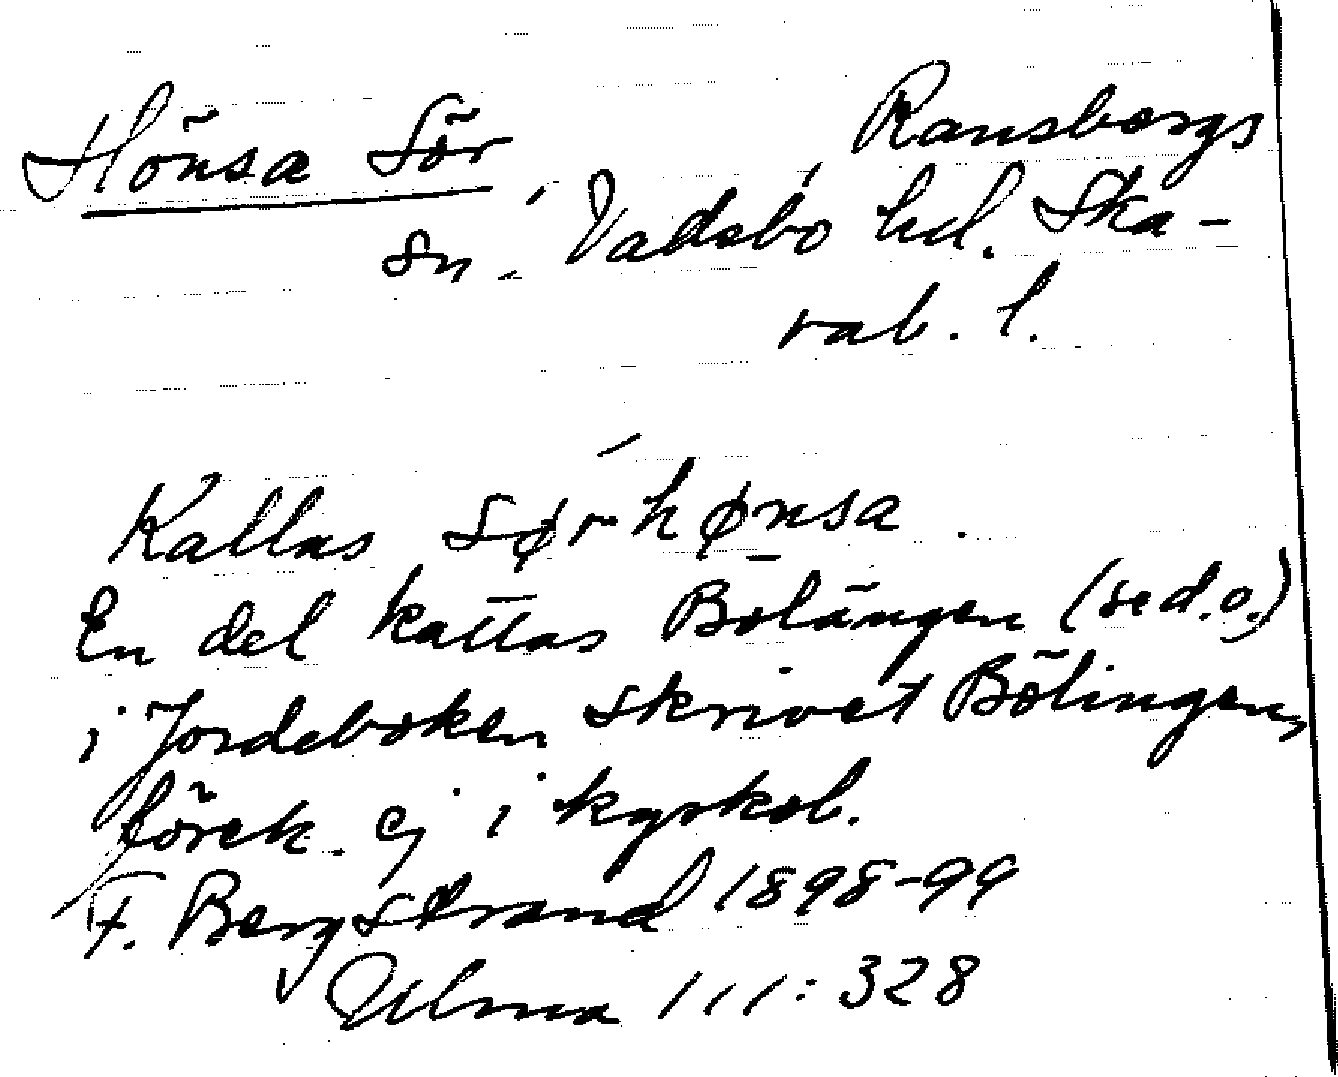 Hönsa Sör, Ransbergs
sn., Vadsbo hd. Ska-
rab. l.
Kallas Sørhønsa.
En del kallas Bölängen (se d.o.)
i Jordeboken skrivet Bölingen,
förek. ej i kyrkob.
F. Bergstrand 1898-99
Ulma 111:328